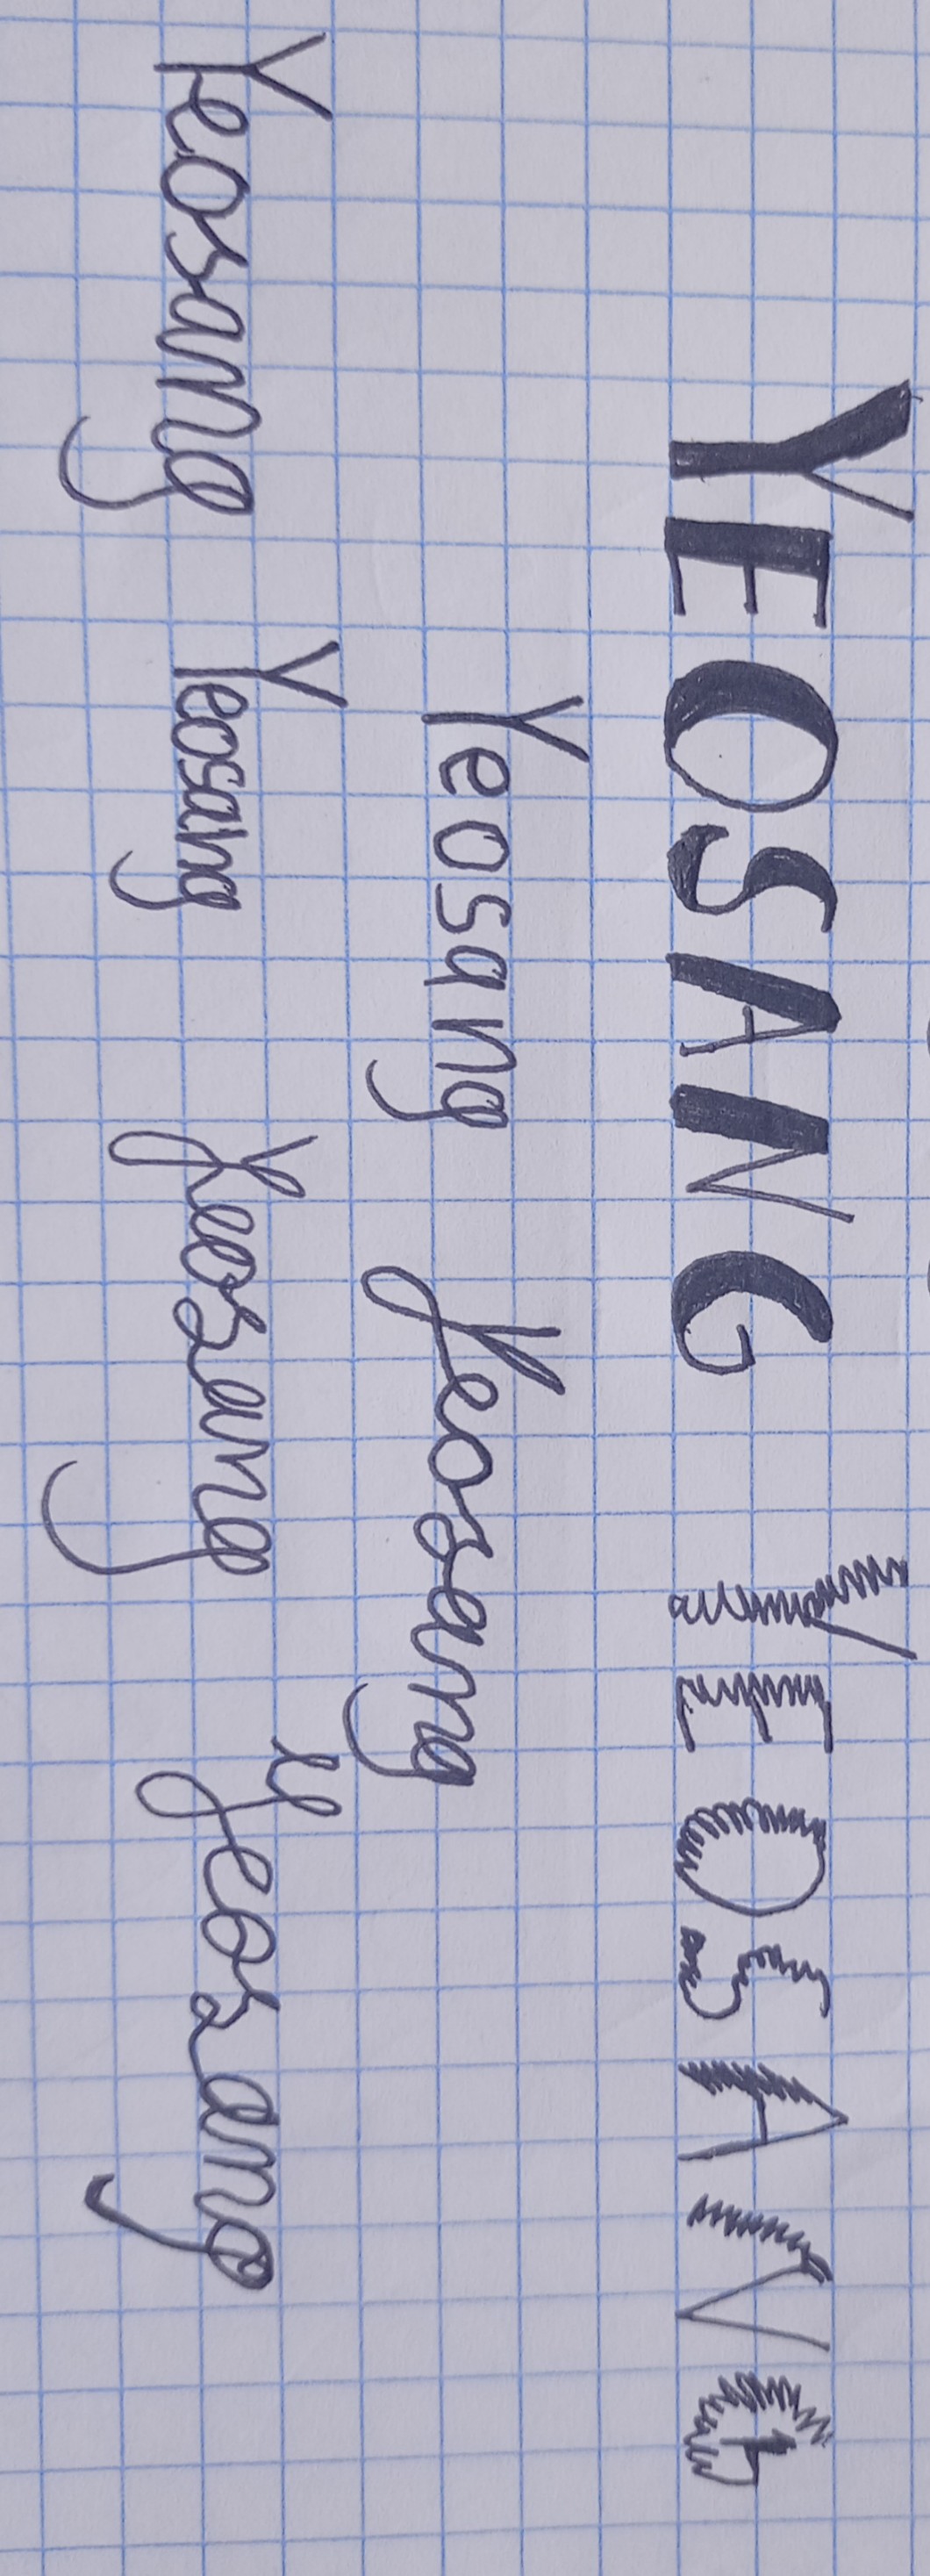 YEOSANG YEOSANG
Yeosang Yeosang
Yeosang Yeosang Yeosang Yeosang